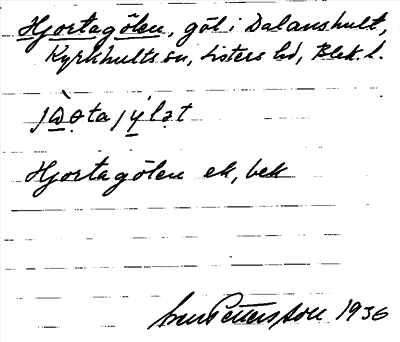 Hjortagölen, göl i Dalanshult,
Kyrkhults sn, Listers hd, Blek. l.
Hjortagölen ek, bek
Pettersson 1936